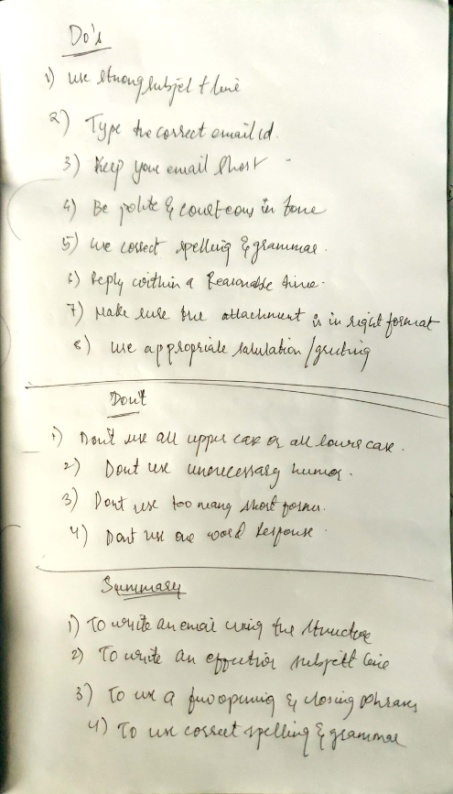 Do's
1) use strong subject line
2) Type the correct email id.
3) Keep your email short
4) Be polite & courteous in tone
5) use correct spelling & grammar.
6) Reply within a Reasonable time.
7) Make sure the attachment is in right format
8) use appropriate salutation/greeting
Don't
1) Don't use all upper case or all lower case.
2) Dont use unnecessary humor.
3) Dont use too many short forms.
4) Dont use one word Response.
Summary
1) To write an email using the structure
2) To write an effective subject line
3) To use a few opening & closing phrases
4) To use correct spelling & grammar